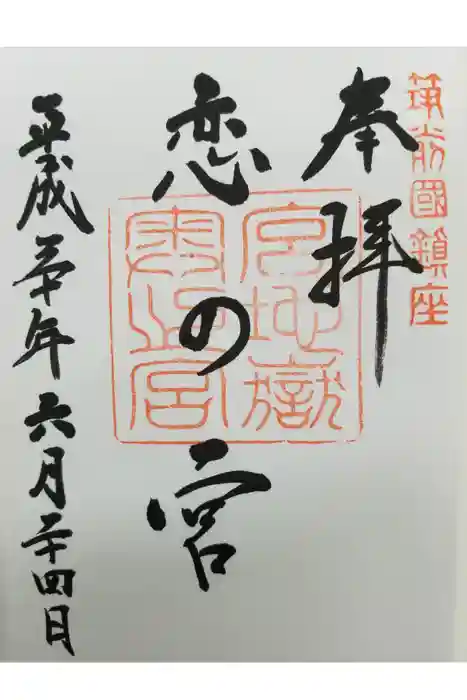 筑前國鎮座
奉拝
宮地嶽
恋の宮
平成三十年六月二十四日